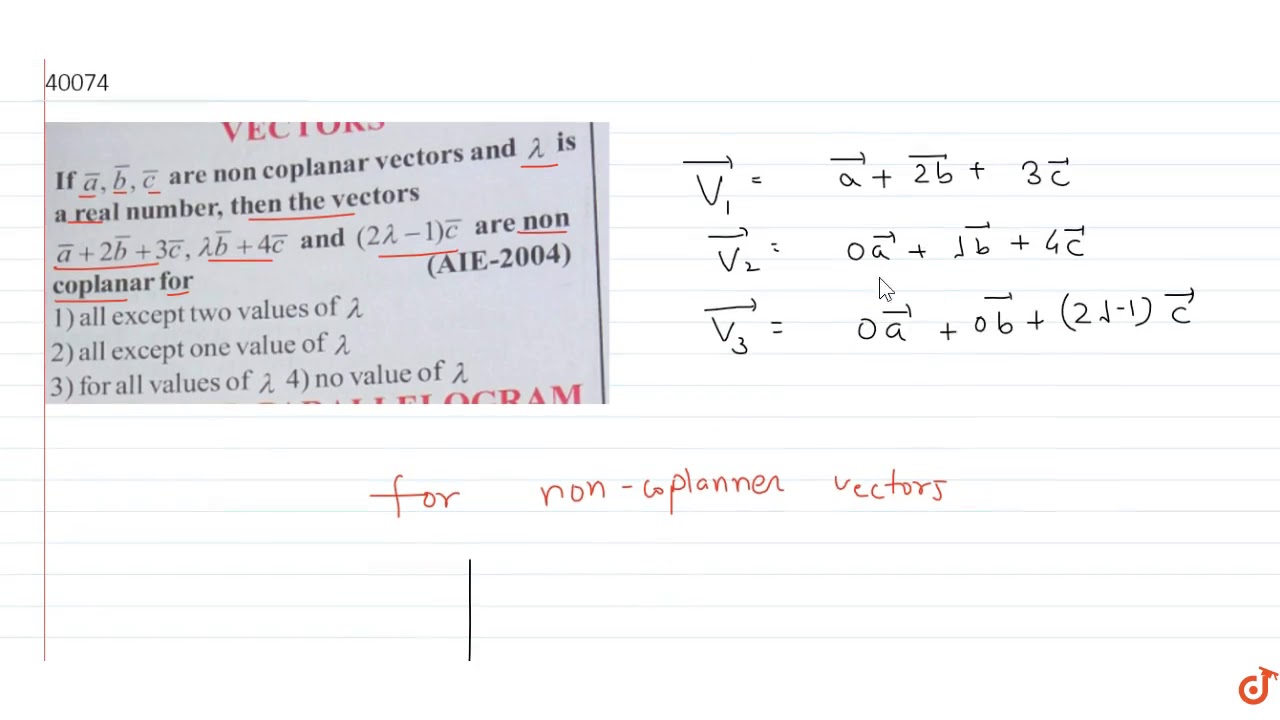 40074
VECTORS
If a̅, b̅, c̅ are non coplanar vectors and λ is
a real number, then the vectors
a̅ + 2b̅ + 3c̅, λb̅ + 4c̅ and (2λ − 1)c̅ are non
coplanar for
(AIE-2004)
1) all except two values of λ
2) all except one value of λ
3) for all values of λ 4) no value of λ
PARALLELOGRAM
V⃗₁ = a⃗ + 2b⃗ + 3c⃗
V⃗₂ = 0a⃗ + λb⃗ + 4c⃗
V⃗₃ = 0a⃗ + 0b⃗ + (2λ-1) c⃗
for non-coplanner vectors